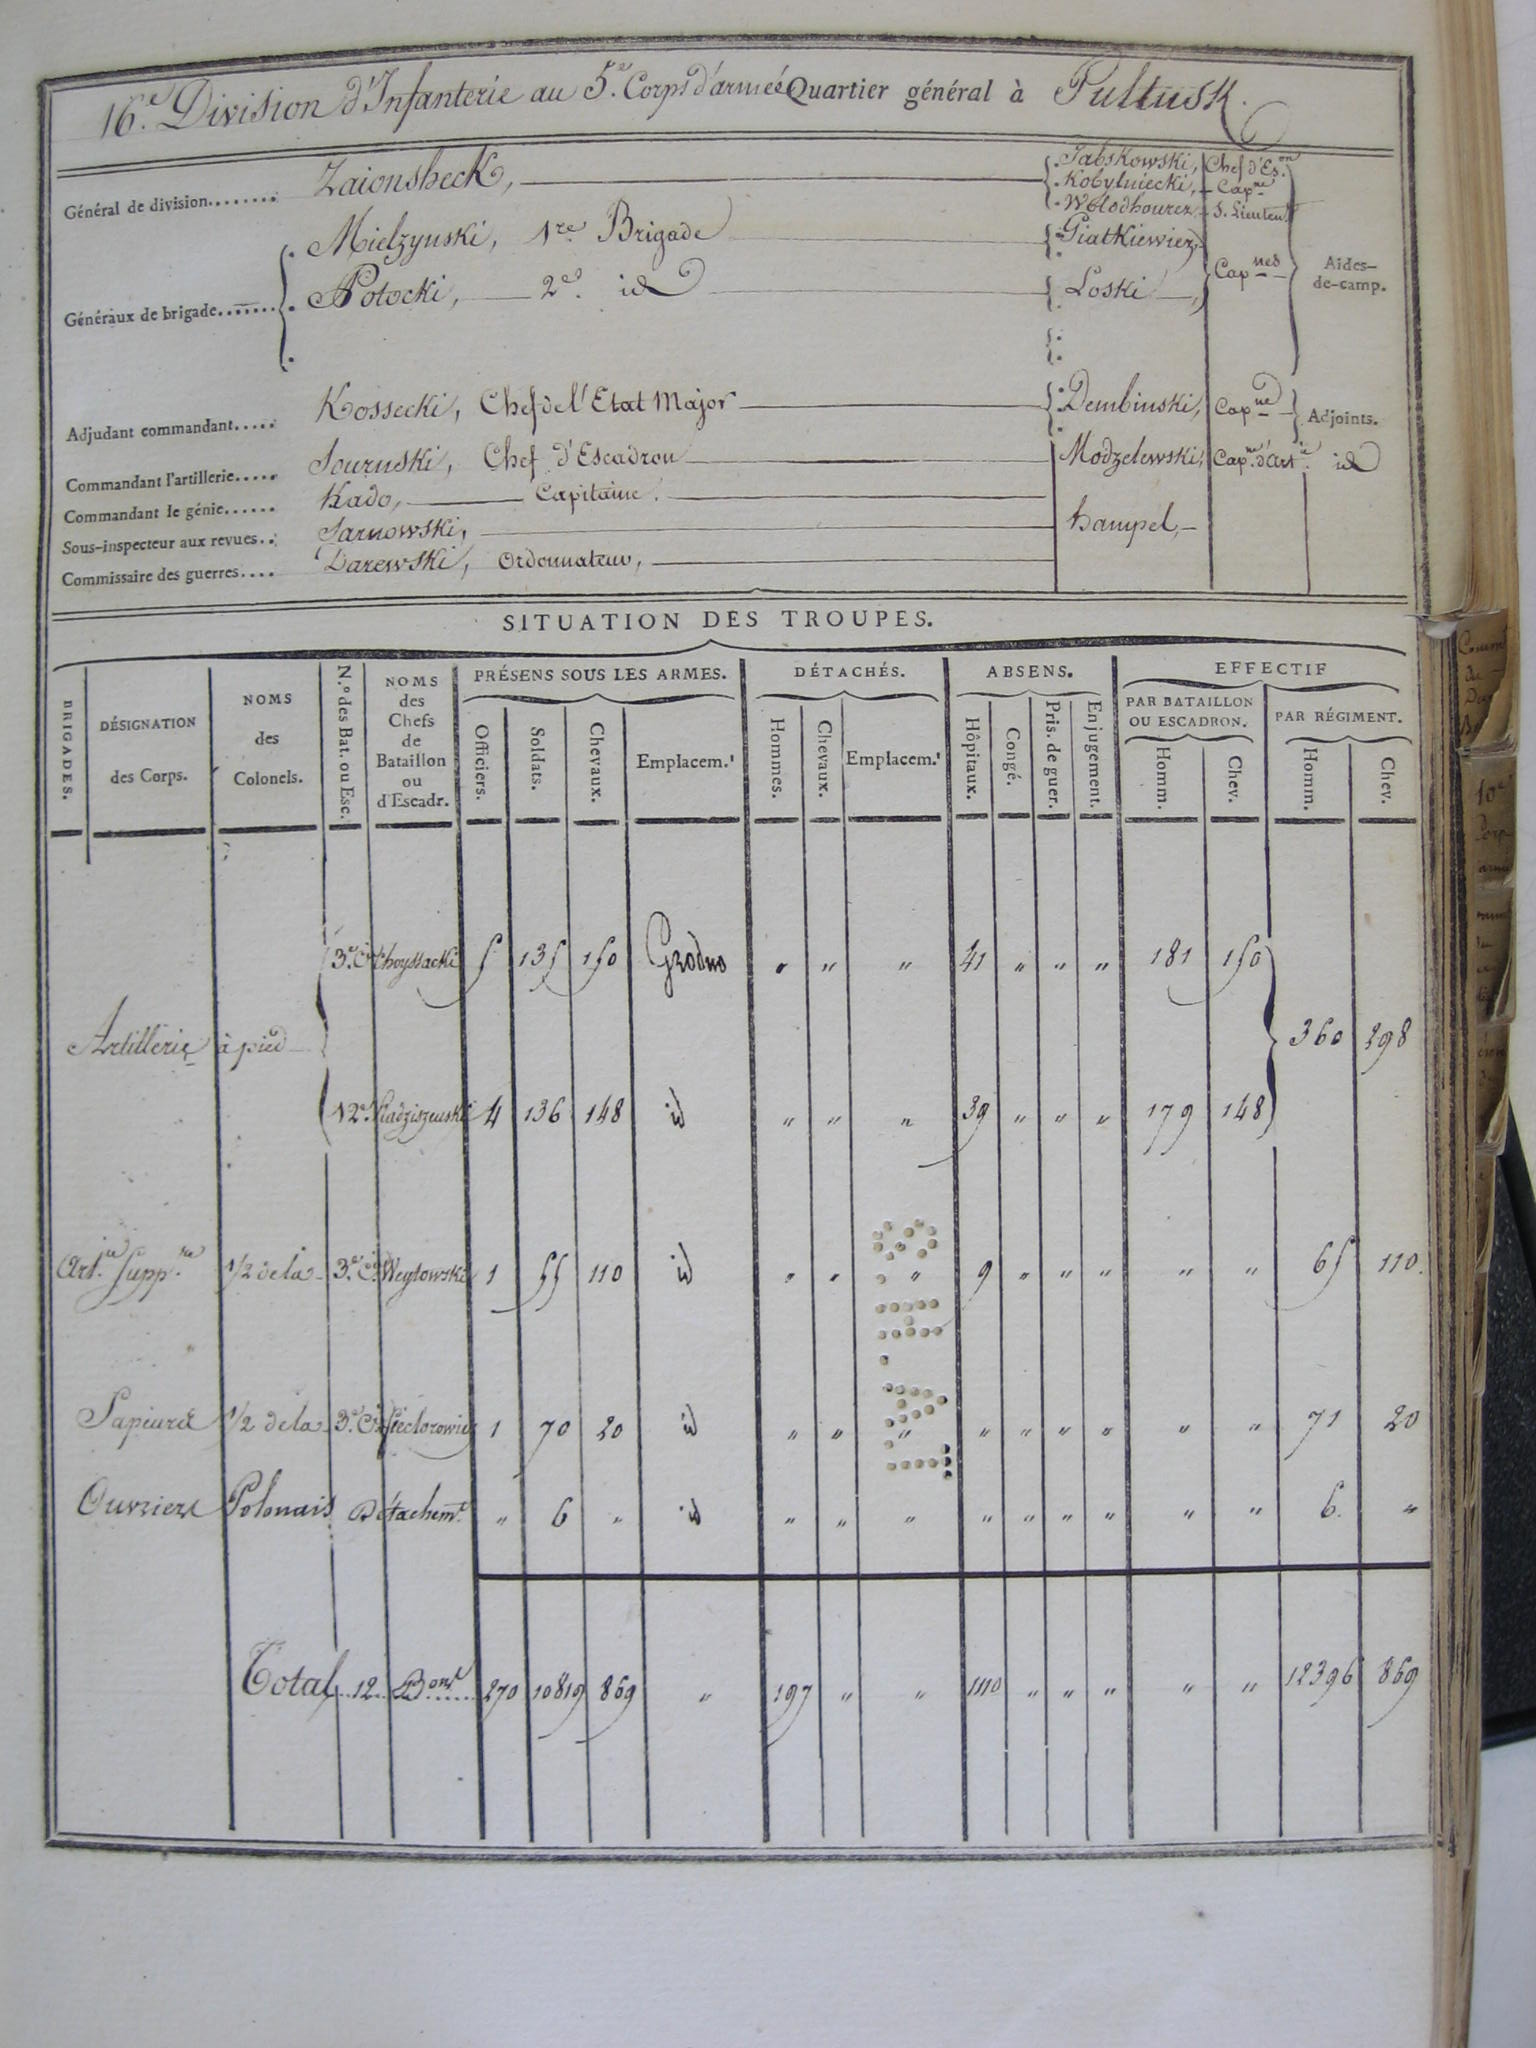 16.e Division d'Infanterie au 5.e Corps d'armée Quartier général à Pultusk.
Général de division........ Zaionsheck, Jabskowski, Chef d'Es.on
Kobylniecki, Cap.ne
Wolodhourez S. Lieuten.t
Généraux de brigade....... Mielzynski, 1re Brigade Giatkiewiez,
Potocki, 2e. id Loski, Cap.nes Aides-de-camp.
Adjudant commandant..... Kossecki, Chef de l'Etat Major Dembinski, Cap.ne Adjoints.
Commandant l'artillerie..... Sournski, Chef d'Escadron Modzelewski, Cap.ne d'Art.ie id
Commandant le génie...... Kado, Capitaine.
Sous-inspecteur aux revues.. Tarnowski, hampel,
Commissaire des guerres.... Darewski, Ordonnateur,
SITUATION DES TROUPES.
BRIGADES. DÉSIGNATION des Corps. NOMS des Colonels. N.o des Bat. ou Esc. NOMS des Chefs de Bataillon ou d'Escadr. PRÉSENS SOUS LES ARMES. DÉTACHÉS. ABSENS. EFFECTIF
PAR BATAILLON OU ESCADRON. PAR RÉGIMENT.
Officiers. Soldats. Chevaux. Emplacem.t Hommes. Chevaux. Emplacem.t Hôpitaux. Congé. Pris. de guer. En jugement. Homm. Chev. Homm. Chev.
3.e C.ie Choyssacki 5 135 150 Grodno " " " 41 " " " 181 150
Artillerie à pied 360 298
12.e Nadziszewski 4 136 148 id " " " 39 " " " 179 148
Art.ie Supp.re 1/2 de la 3.e C.ie Weytowski 1 55 110 id " " " 9 " " " " " 65 110.
S.H.A.T
Sapeurs 1/2 de la 3.e C.ie 1 70 20 id " " " " " " " " " 71 20
Ouvriers Polonais Détachem.t " 6 " id " " " " " " " " " 6. "
Total 12 B.ons 270 10819 869 " 197 " " 1110 " " " " " 12396 869
Comm.t
du
10.e